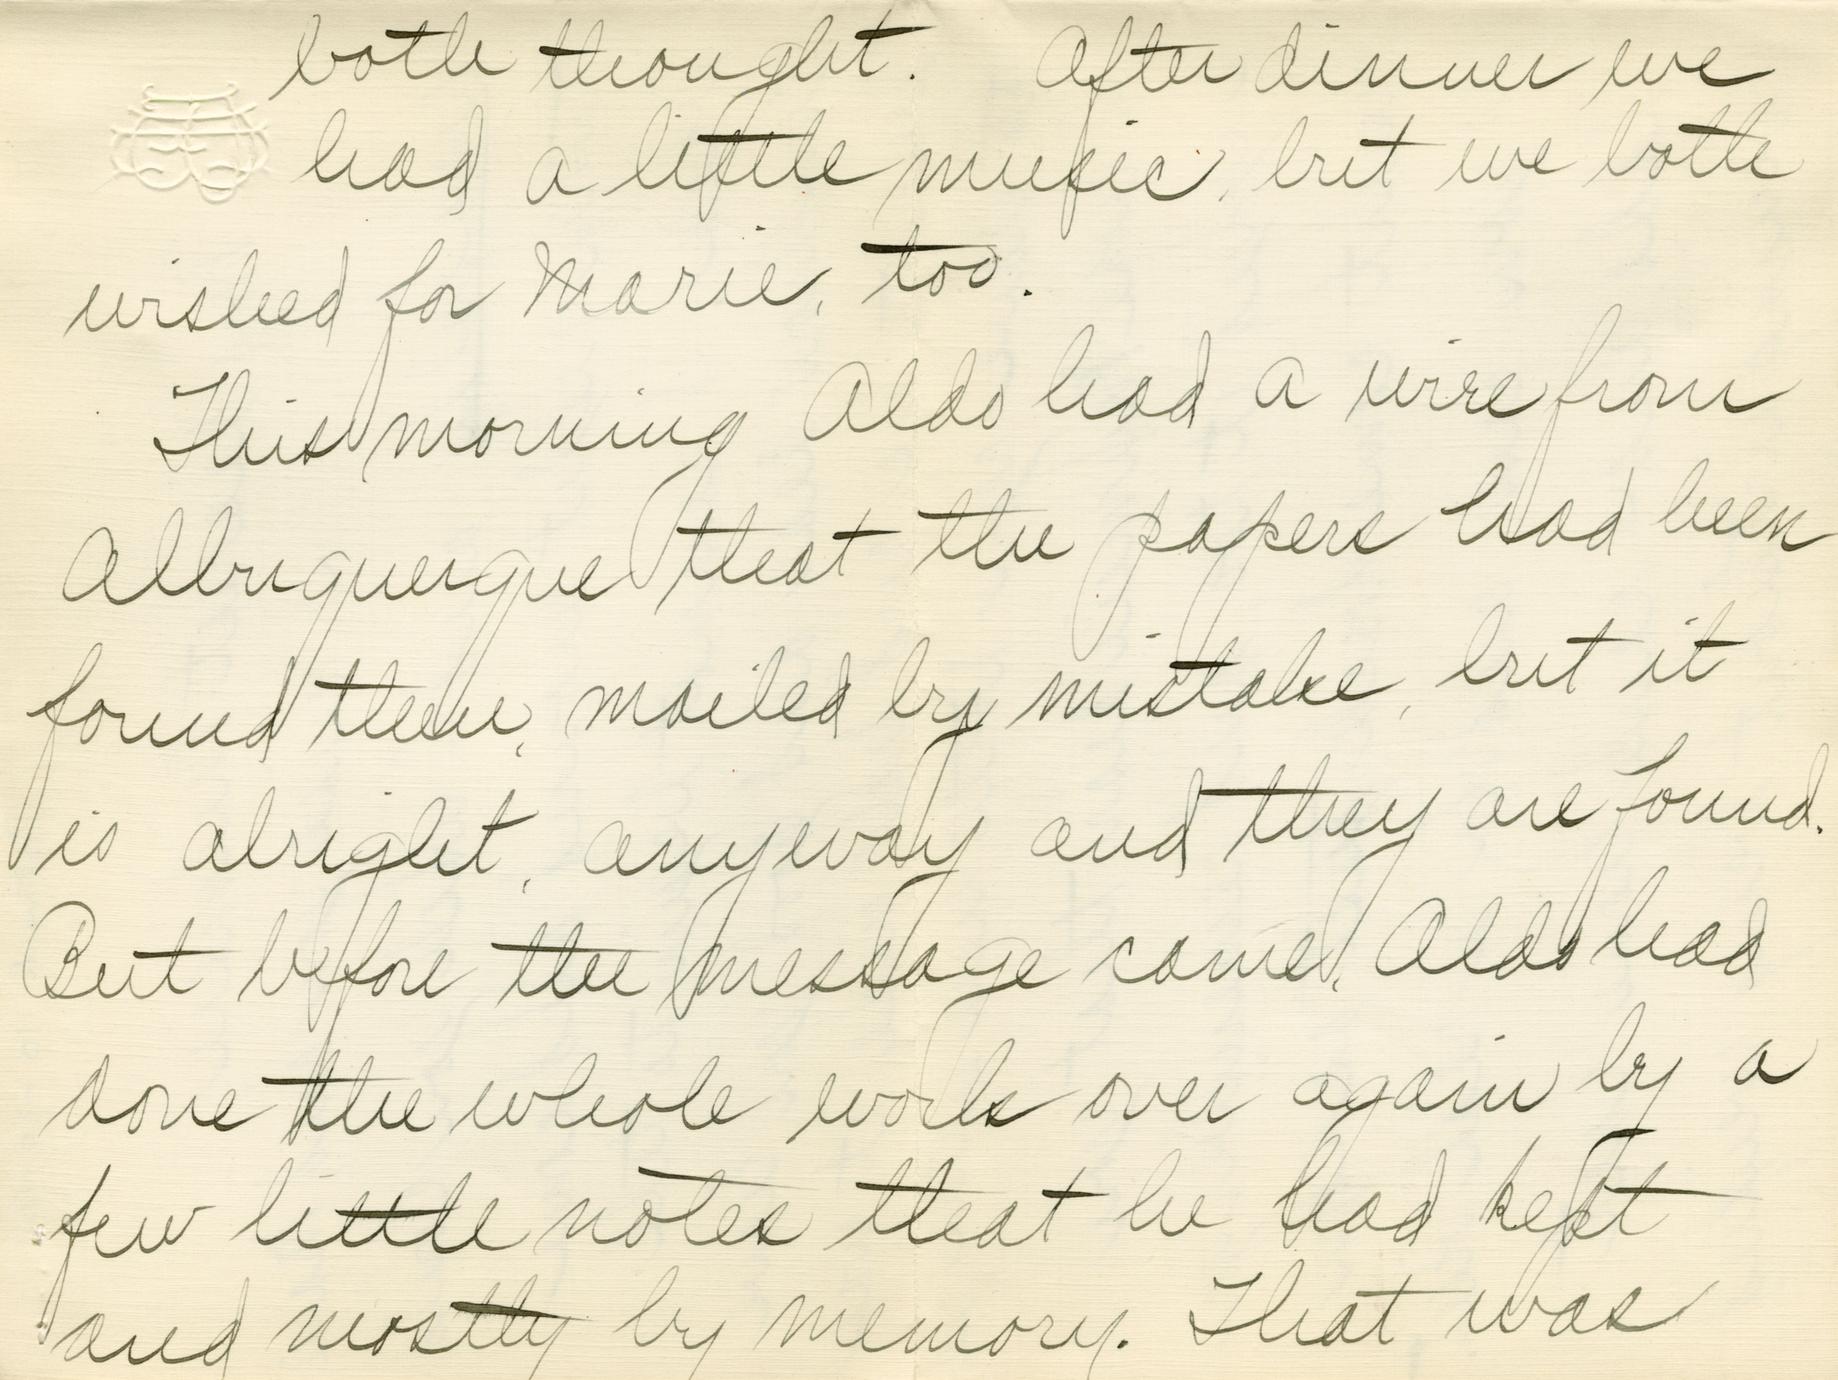 both thought. After dinner we
had a little music, but we both
wished for Marie, too.
This morning Aldo had a wire from
Albuquerque that the papers had been
found there, mailed by mistake, but it
is alright, anyway and they are found.
But before the message came, Aldo had
done the whole work over again by a
few little notes that he had kept
and mostly by memory. That was